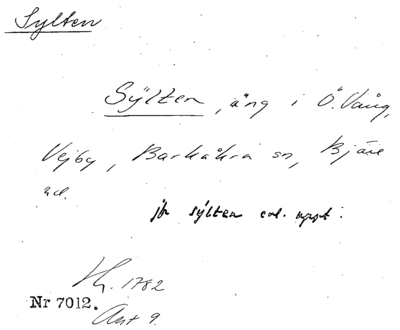 Sylten
Sylten, äng i Ö. Vång,
Vejby, Barkåkra sn, Bjäre
hd.
jfr sylten enl. uppt.
Hg. 1782
Nr 7012.
Akt 9.